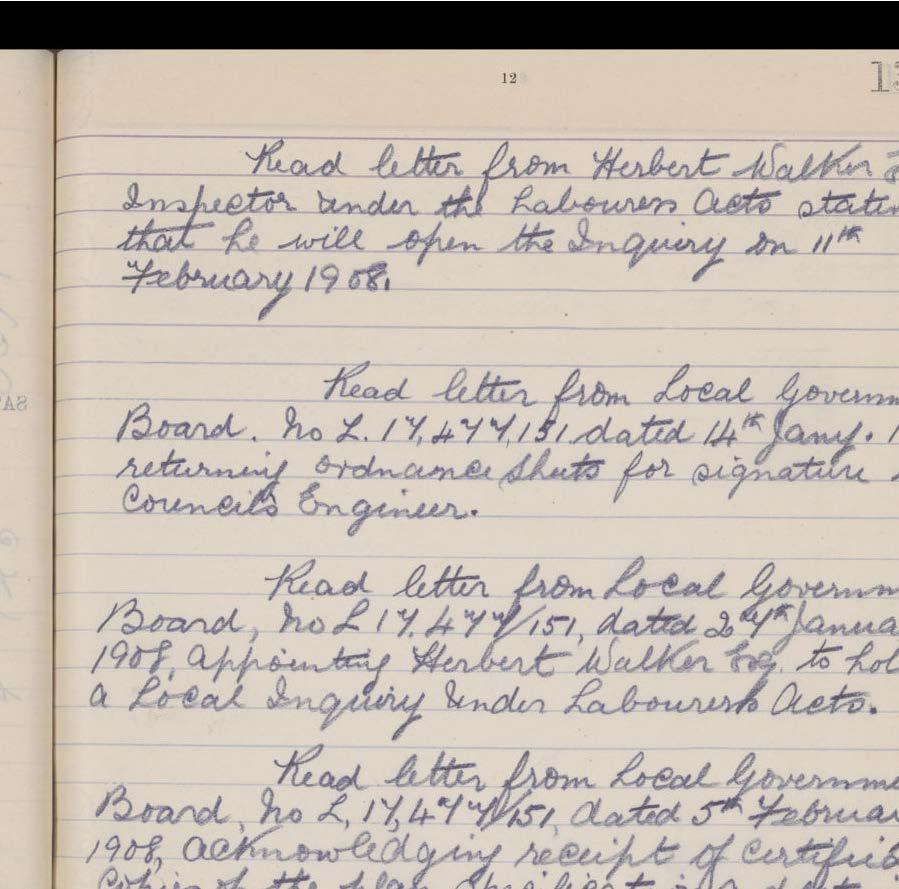 12
13
Read letter from Herbert Walker
Inspector under the Labourers Acts statin
that he will open the Inquiry on 11th
February 1908.
Read letter from Local Governm
Board. No L. 17,477,151 dated 14th Jany. 1
returning ordnance sheets for signature
Council's Engineer.
Read letter from Local Governm
Board, No L 17.477/151, dated 27th Janua
1908, appointing Herbert Walker Esq. to hol
a Local Inquiry under Labourers Acts.
Read letter from Local Governme
Board, No L, 17,477/151, dated 5th Februar
1908, acknowledging receipt of certified
copies of the plan